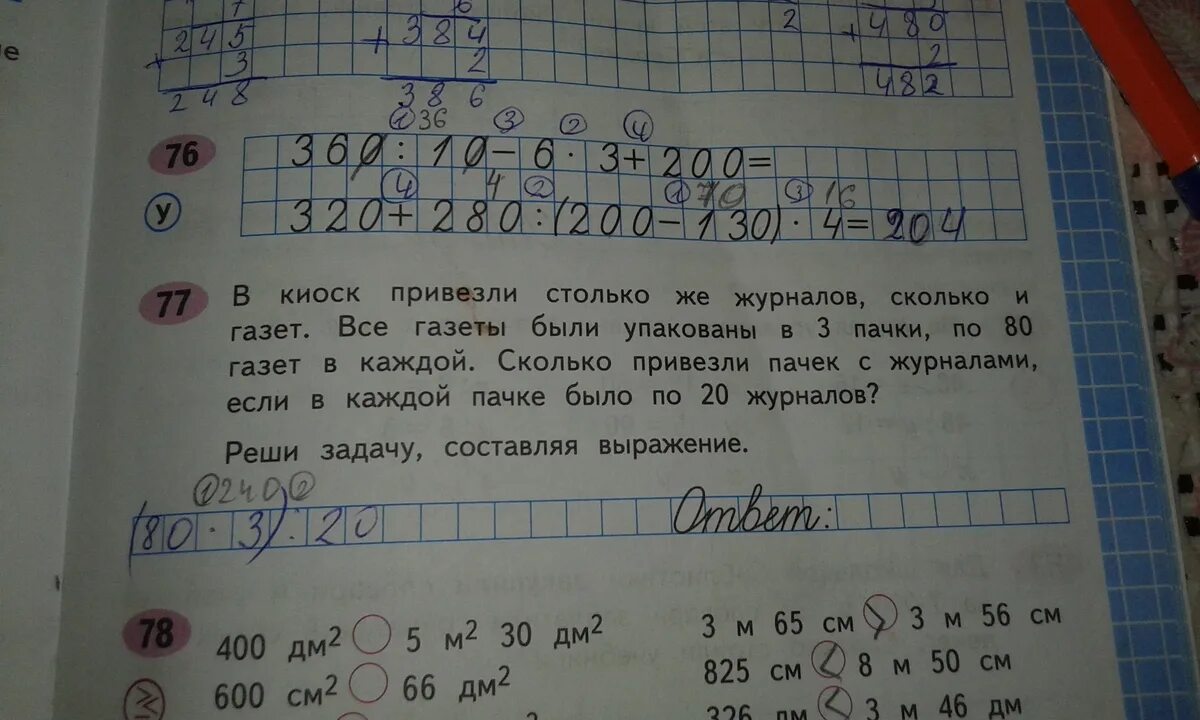 7 6
245 384 2 480
+ 3 + 2 + 2
248 386 482
① 36 ③ ② ④
76 360 : 10 - 6 · 3 + 200 =
④ 4 ② ① 70 ③ 16
У 320 + 280 : (200 - 130) · 4 = 204
77 В киоск привезли столько же журналов, сколько и
газет. Все газеты были упакованы в 3 пачки, по 80
газет в каждой. Сколько привезли пачек с журналами,
если в каждой пачке было по 20 журналов?
Реши задачу, составляя выражение.
① 240 ②
(80 · 3) : 20 Ответ:
78 400 дм² 5 м² 30 дм² 3 м 65 см > 3 м 56 см
600 см² 66 дм² 825 см < 8 м 50 см
326 дм < 3 м 46 дм